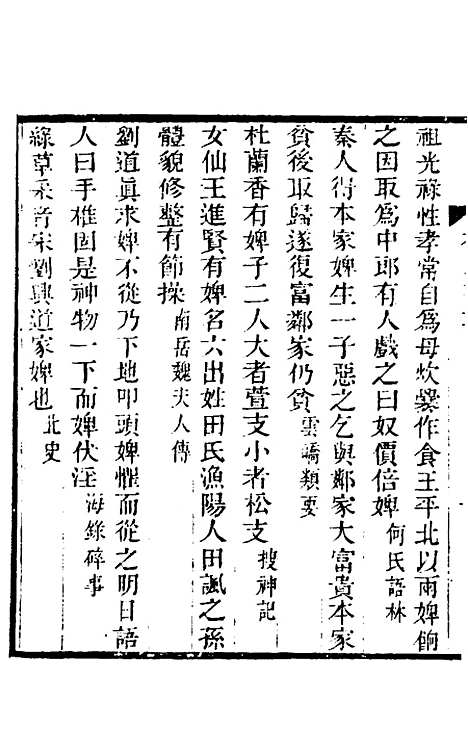 祖光祿性孝常自爲母炊㸑作食王平北以兩婢餉
之因取爲中郎有人戲之曰奴價倍婢何氏語林
秦人得本家婢生一子惡之乞與鄰家大富貴本家
貧後取歸遂復富鄰家仍貧雲嶠類要
杜蘭香有婢子二人大者萱支小者松支搜神記
女仙王進賢有婢名六出姓田氏漁陽人田諷之孫
體貌修整有節操南岳魏夫人傳
劉道眞求婢不從乃下地叩頭婢懼而從之明日語
人曰手椎固是神物一下而婢伏淫海錄碎事
綠草采音宋劉興道家婢也北史